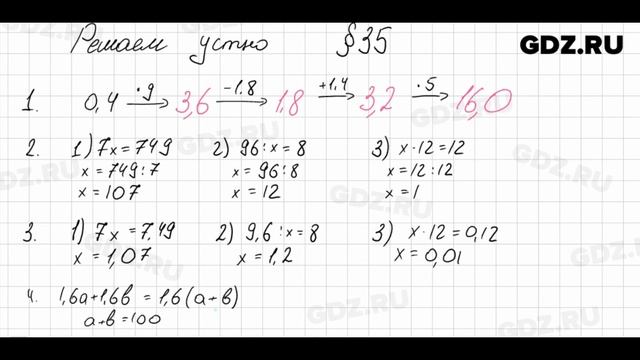 Решаем устно §35
GDZ.RU
1. 0,4 —·9→ 3,6 —-1.8→ 1,8 —+1,4→ 3,2 —·5→ 16,0
2. 1) 7x = 749 2) 96 : x = 8 3) x · 12 = 12
x = 749 : 7 x = 96 : 8 x = 12 : 12
x = 107 x = 12 x = 1
3. 1) 7x = 7,49 2) 9,6 : x = 8 3) x · 12 = 0,12
x = 1,07 x = 1,2 x = 0,01
4. 1,6a + 1,6в = 1,6(a + в)
a + в = 100